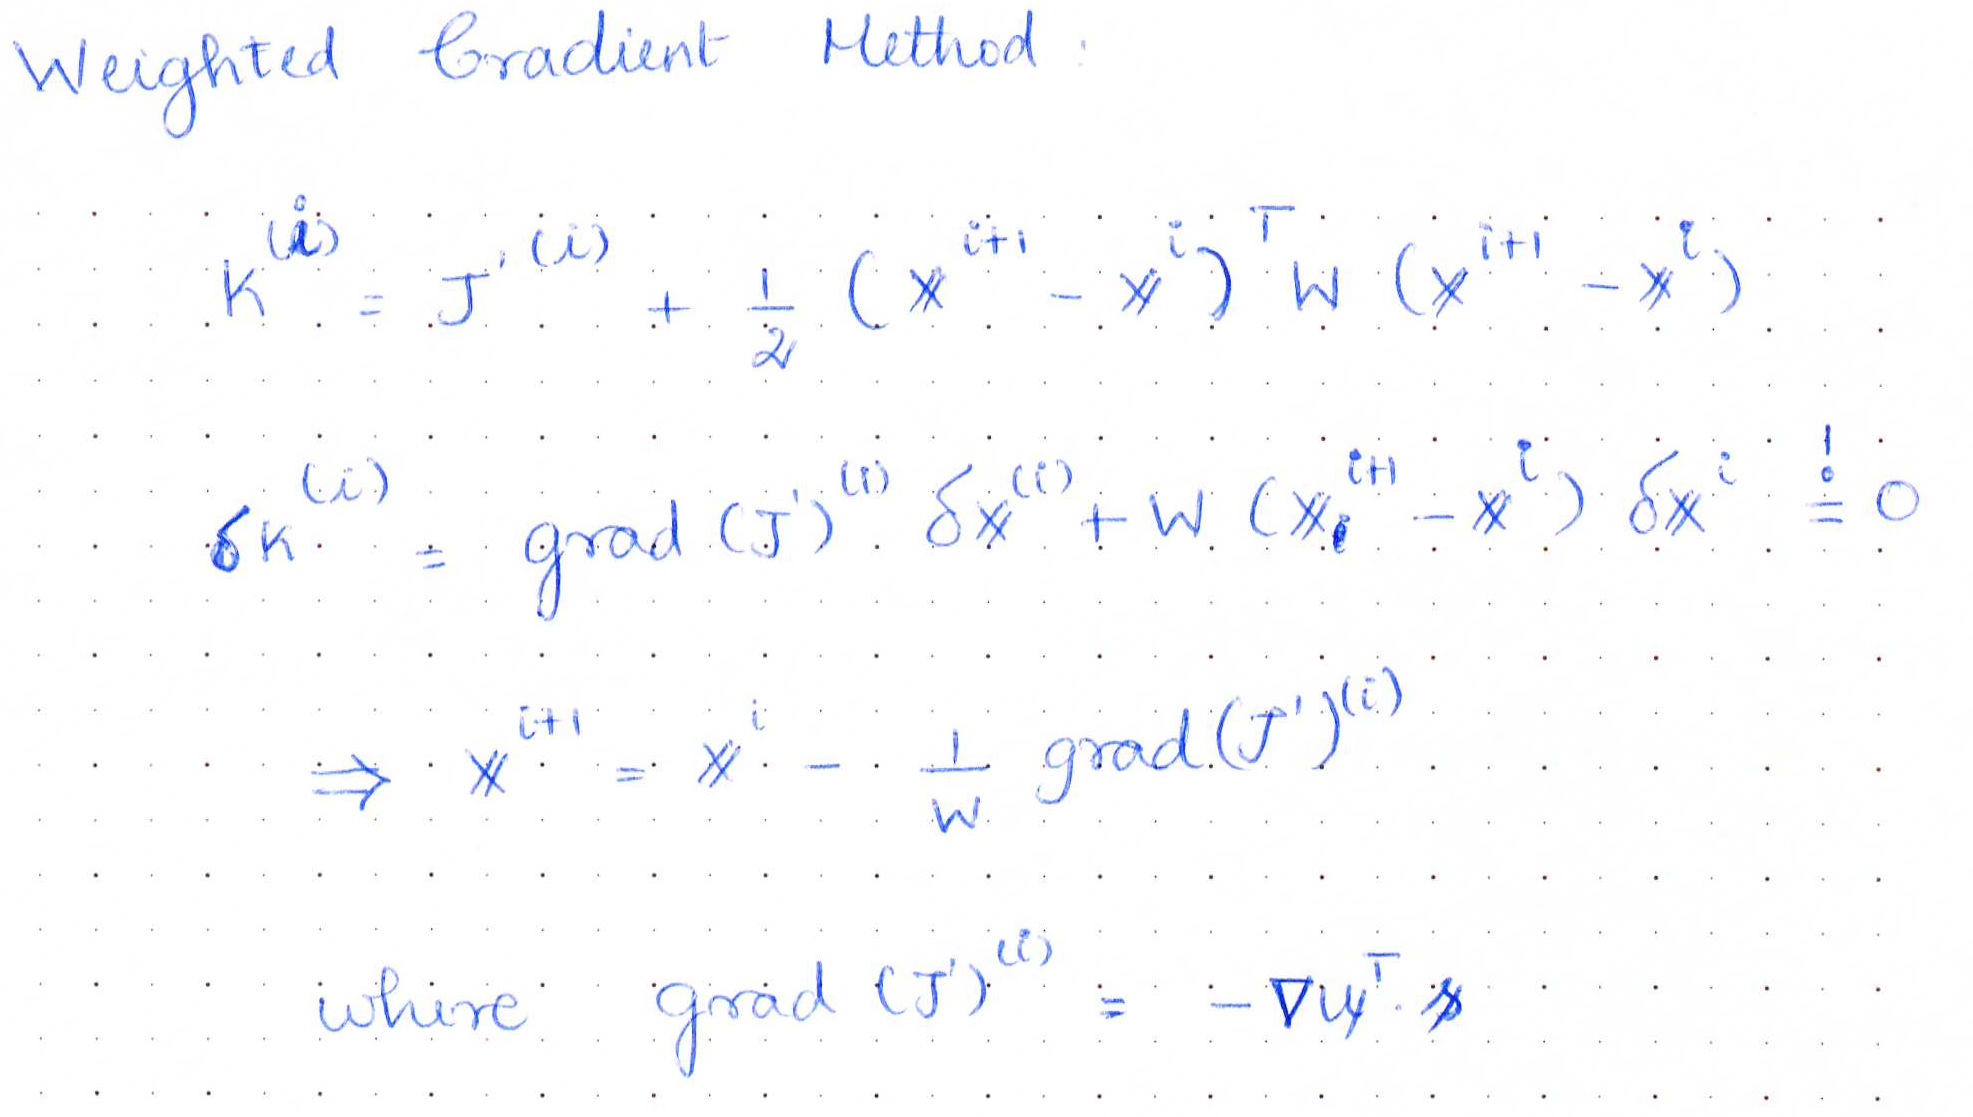 Weighted Gradient Method:
K^(i) = J'^(i) + 1/2 (𝕩^{i+1} - 𝕩^i)^T W (𝕩^{i+1} - 𝕩^i)
δK^(i) = grad (J')^(i) δ𝕩^(i) + W (𝕩_i^{i+1} - 𝕩^i) δ𝕩^i =! 0
⇒ 𝕩^{i+1} = 𝕩^i - 1/W grad (J')^(i)
where grad (J')^(i) = -∇ψ^T ·